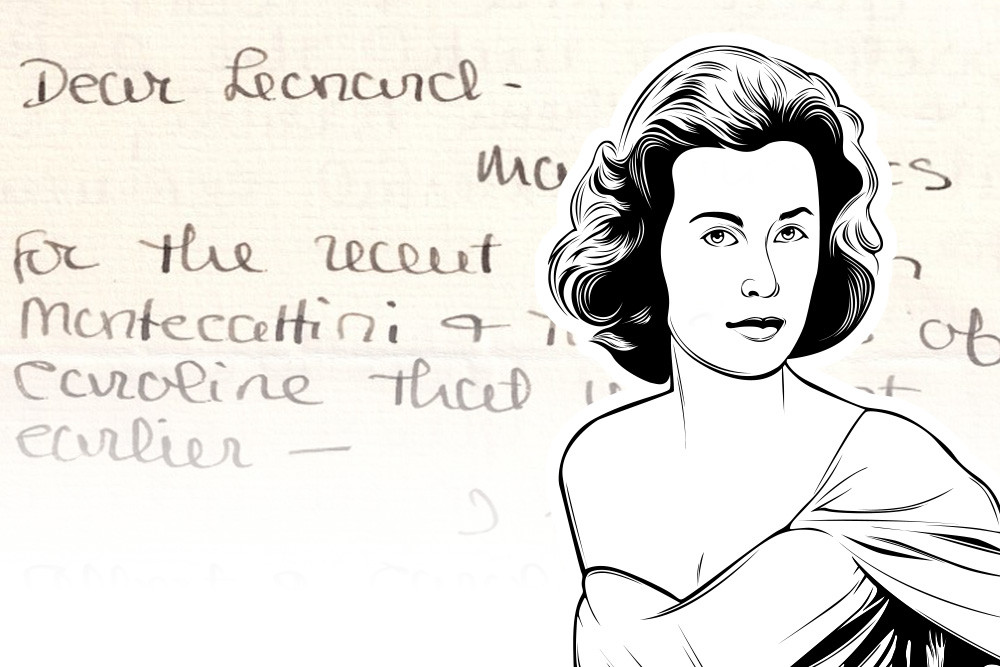 Dear Leonard -
for the recent
Montecattini + of
Caroline that
earlier —
I